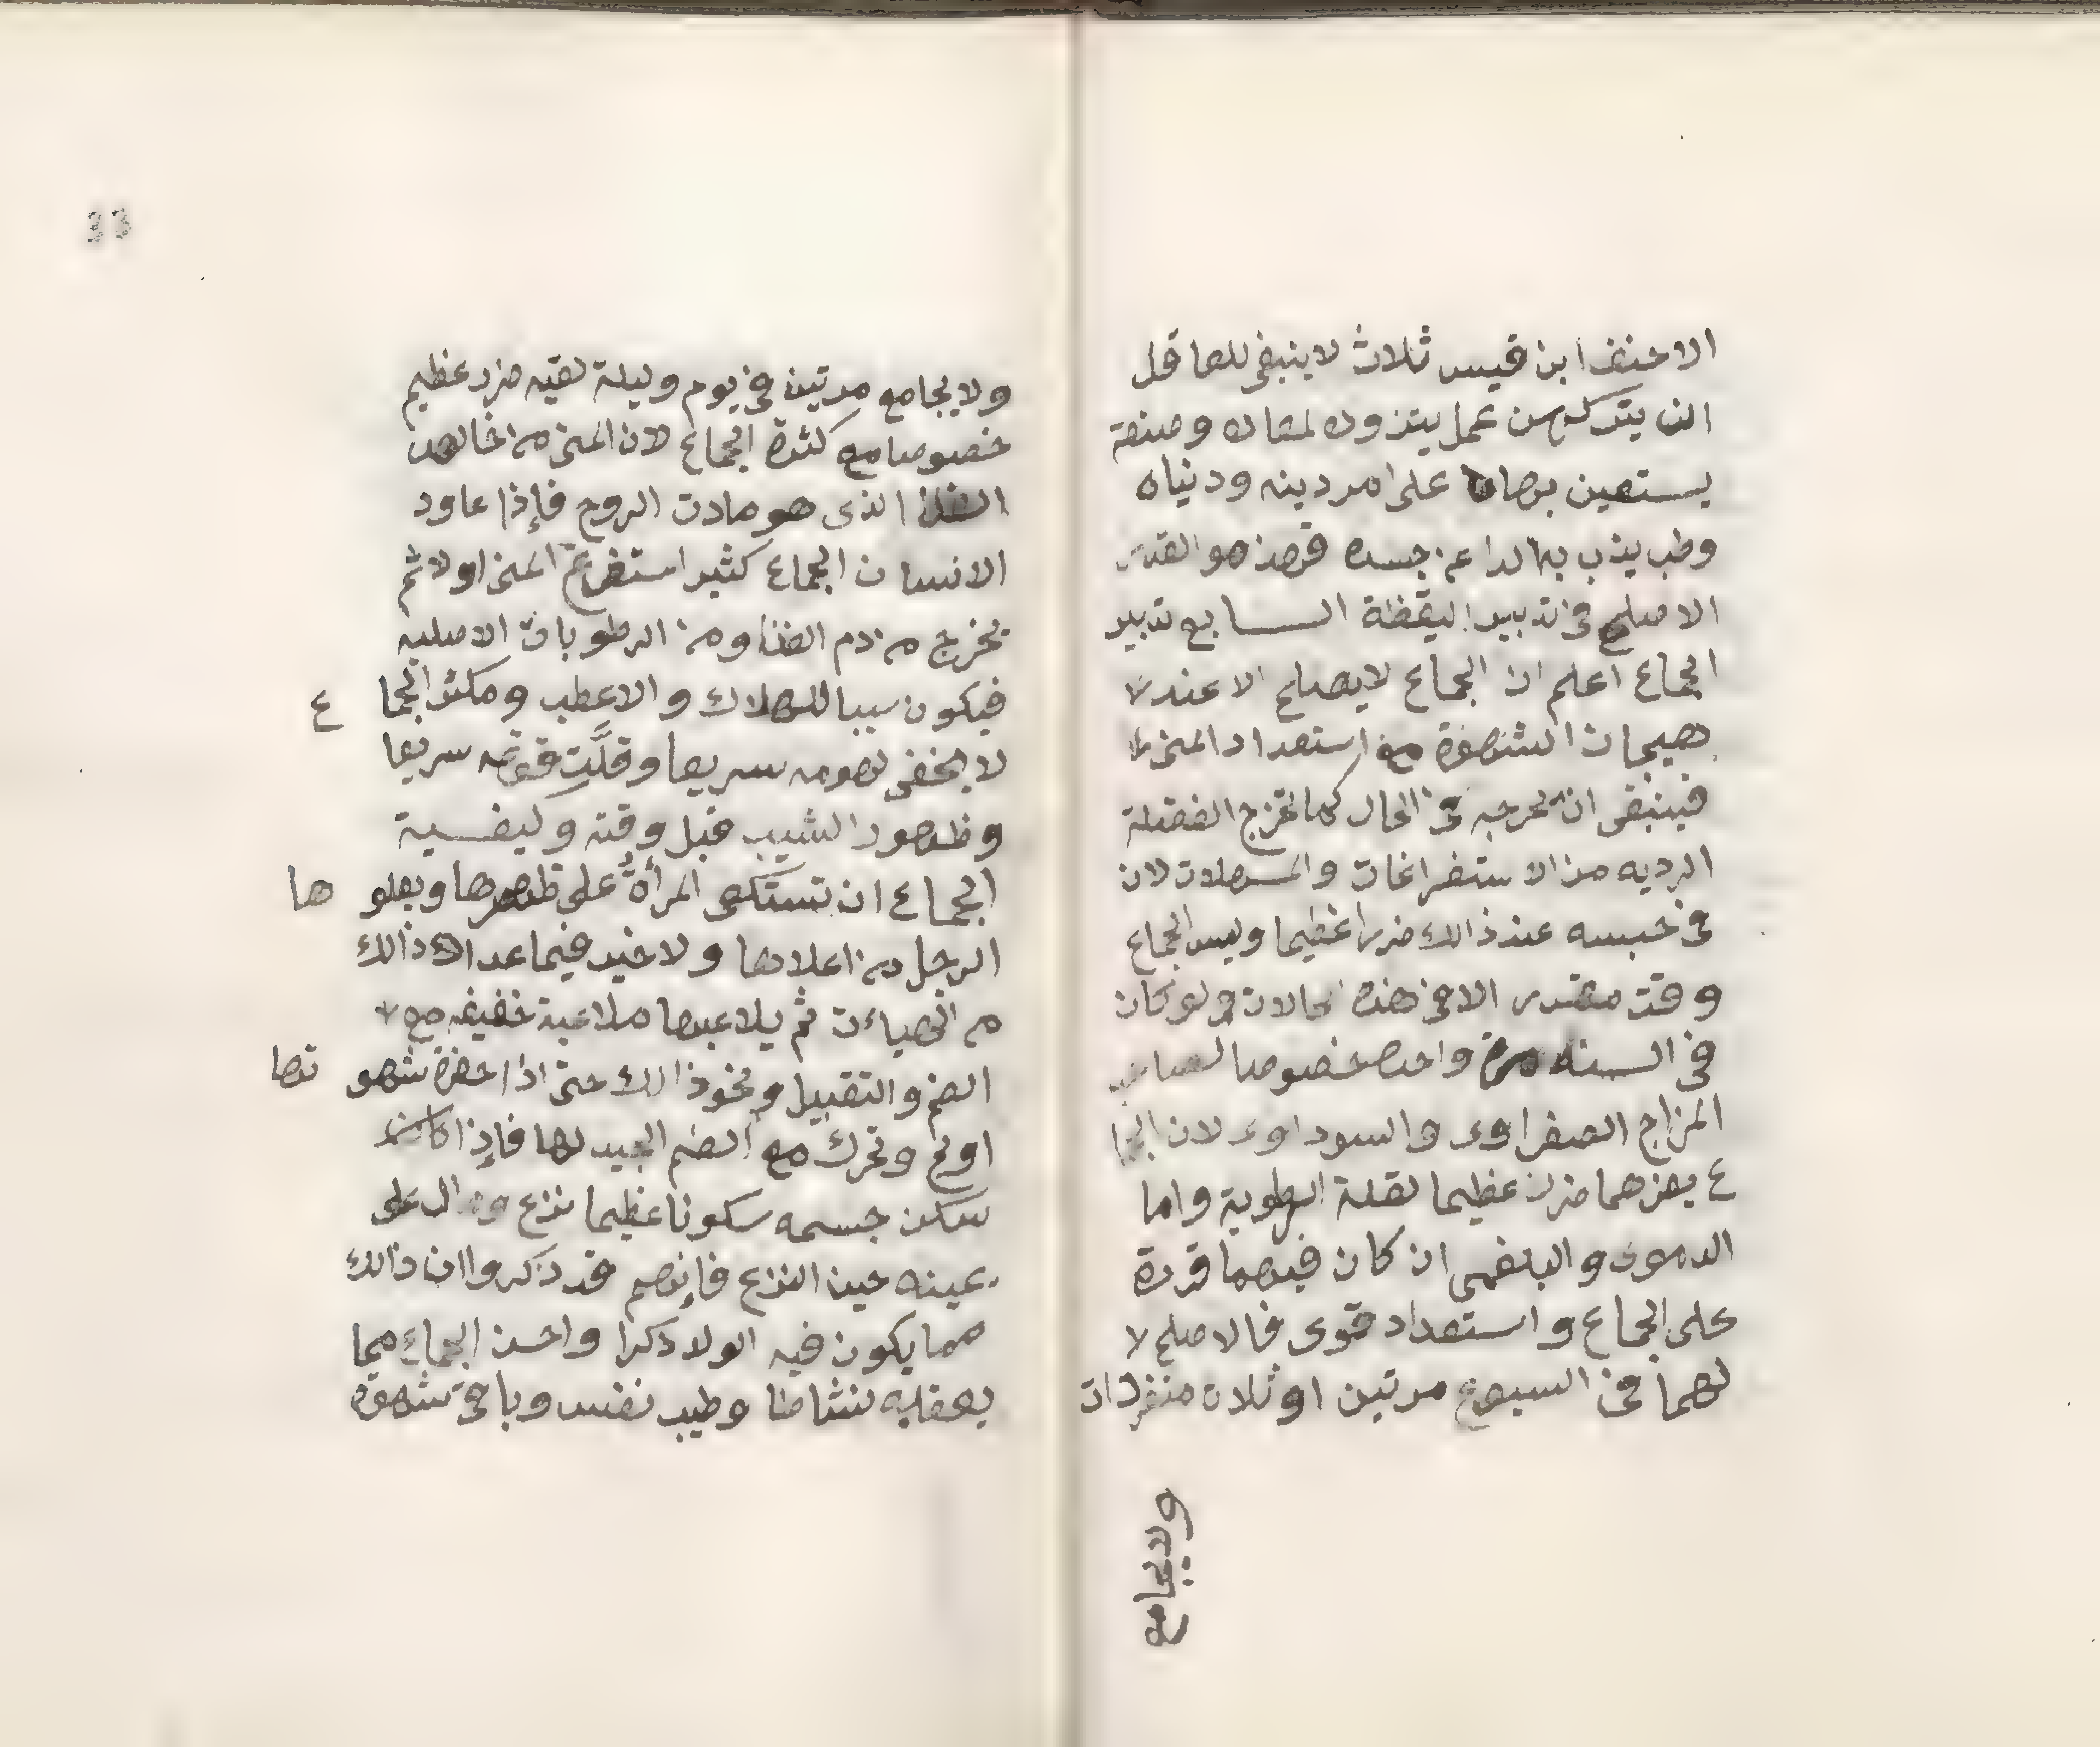 الاحنف ابن قيس ثلاث لا ينبغي للعاقل
ان يتركهن عمل يتزوده لمعاده وصنعة
يستعين بها على امر دينه ودنياه
وطب يذب به الداء عن جسده فهذ هو القدر
الاصلح في تدبير اليقظة السابع تدبير
الجماع اعلم ان الجماع لا يصلح الا عند
هيجان الشهوة مع استعداد المني
فينبغي ان يخرجه في الحال كما تخرج الفضلة
الرديه من الاستفراغات والمسهلات لان
في حبسه عند ذالك ضررا عظيما وليس الجماع
وقت مقدر الا في هذه الحالات ولو كان
في السنه مرة واحده خصوصا لصاحب
المزاج الصفراوى والسوداوى لان الجما
ع يضرهما ضررا عظيما لقلة الرطوبة واما
الدموى والبلغمى ان كان فيهما قدرة
على الجماع واستعداد قوى فالاصلح لا
لهما في السبوع مرتين او ثلاث منفردات
ولا يجامع
33
ولا يجامع مرتين في يوم وليلة ففيه ضرر عظيم
خصوصا مع كثرة الجماع لان المني من خالص
الغذا الذى هو مادت الروح فإذا عاود
الانسان الجماع كثير استفرغ المني اولا ثم
يخرج من دم الغذا ومن الرطوبات الاصليه
فيكون سببا للهلاك والاعطب ومكثر الجما ع
لا يخفى لهومه سريعا وقلَّتِ قوته سريعا
وظهور الشيب قبل وقته وكيفسية
الجماع ان تستلقى المرأةُ على ظهرها ويعلو ها
الرجل من اعلاها ولا خير فيما عدا ذالك
من الهياءت ثم يلاعبها ملاعبة خفيفه مع
الضم والتقبيل ونحو ذالك حتى اذا حضرة شهو تها
اولج وتحرك مع الضم الجيد لها فإذا
سكن جسمه سكونا عظيما نزع ومال على
يمينه حين النزع فإنهم قد ذكروا ان ذالك
مما يكون فيه الولد ذكرا واحسن الجماع مما
يعقبه نشاطا وطيب نفس وباقى شهوة